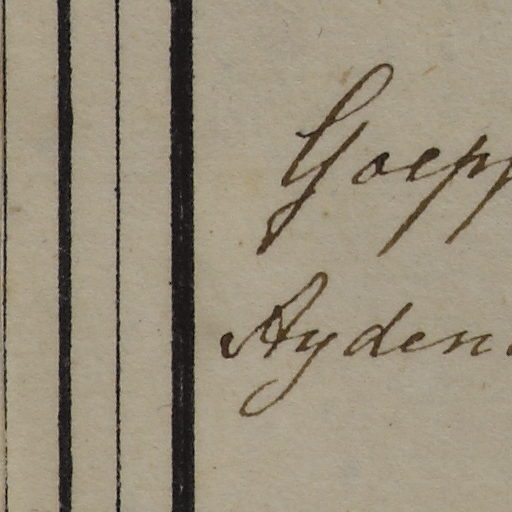 Goepp
Ayden